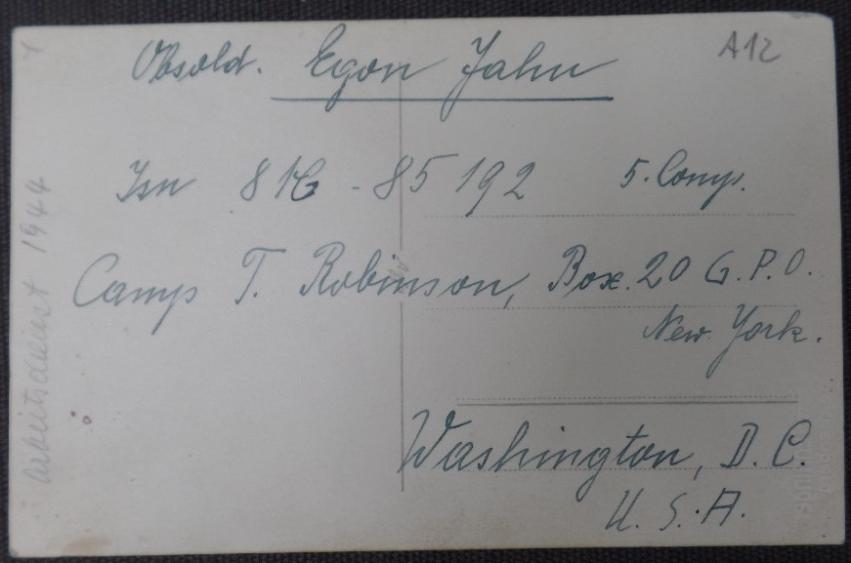 Obsold. Egon Jahn
A12
Isn 81G - 85 192 5. Comp.
Camp T. Robinson, Box. 20 G.P.O.
New York.
Washington, D.C.
U.S.A.
Arbeitsdienst 1944